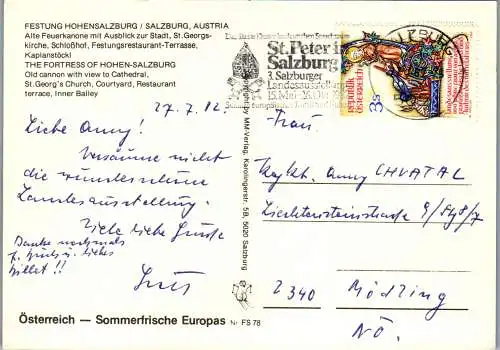 FESTUNG HOHENSALZBURG / SALZBURG, AUSTRIA
Alte Feuerkanone mit Ausblick zur Stadt, St. Georgs-
kirche, Schloßhof, Festungsrestaurant-Terrasse,
Kaplanstöckl
THE FORTRESS OF HOHEN-SALZBURG
Old cannon with view to Cathedral,
St. Georg's Church, Courtyard, Restaurant
terrace, Inner Bailey
27.7.82.
Liebe Anny!
Versäume nicht
die wunderschöne
Landesausstellung.
Viele liebe Grüße
Danke nochmals
f. u. liebes
Billet!!
MM-Verlag, Karolingerstr. 5B, 5020 Salzburg
St. Peter in
Salzburg
3. Salzburger
Landesausstellung
15. Mai
republik
österreich
S 3
Frau
Anny CHVATAL
Liechtensteinstraße
2340 Mödling
NÖ.
Österreich — Sommerfrische Europas Nr. FS 78